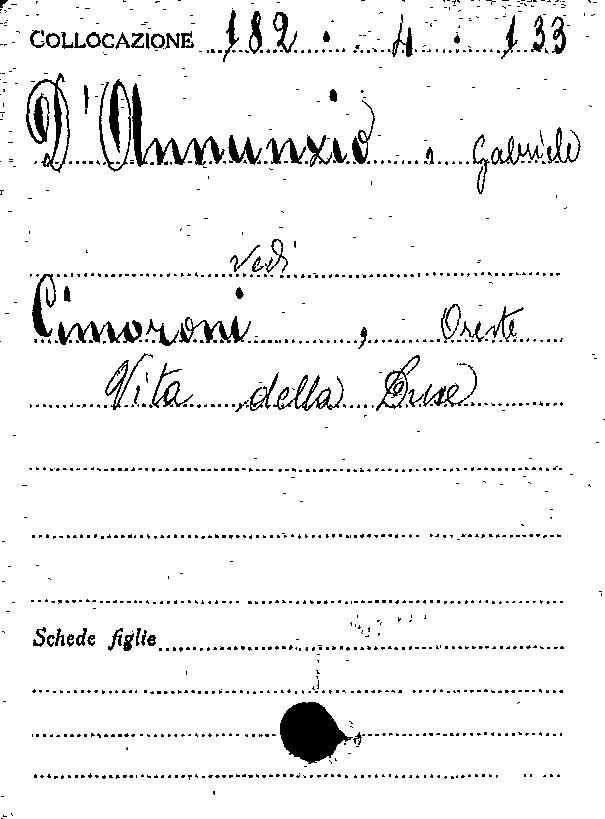 COLLOCAZIONE 182 . 4 . 133
D'Annunzio , Gabriele
vedi
Cimoroni , Oreste
Vita della Duse
Schede figlie